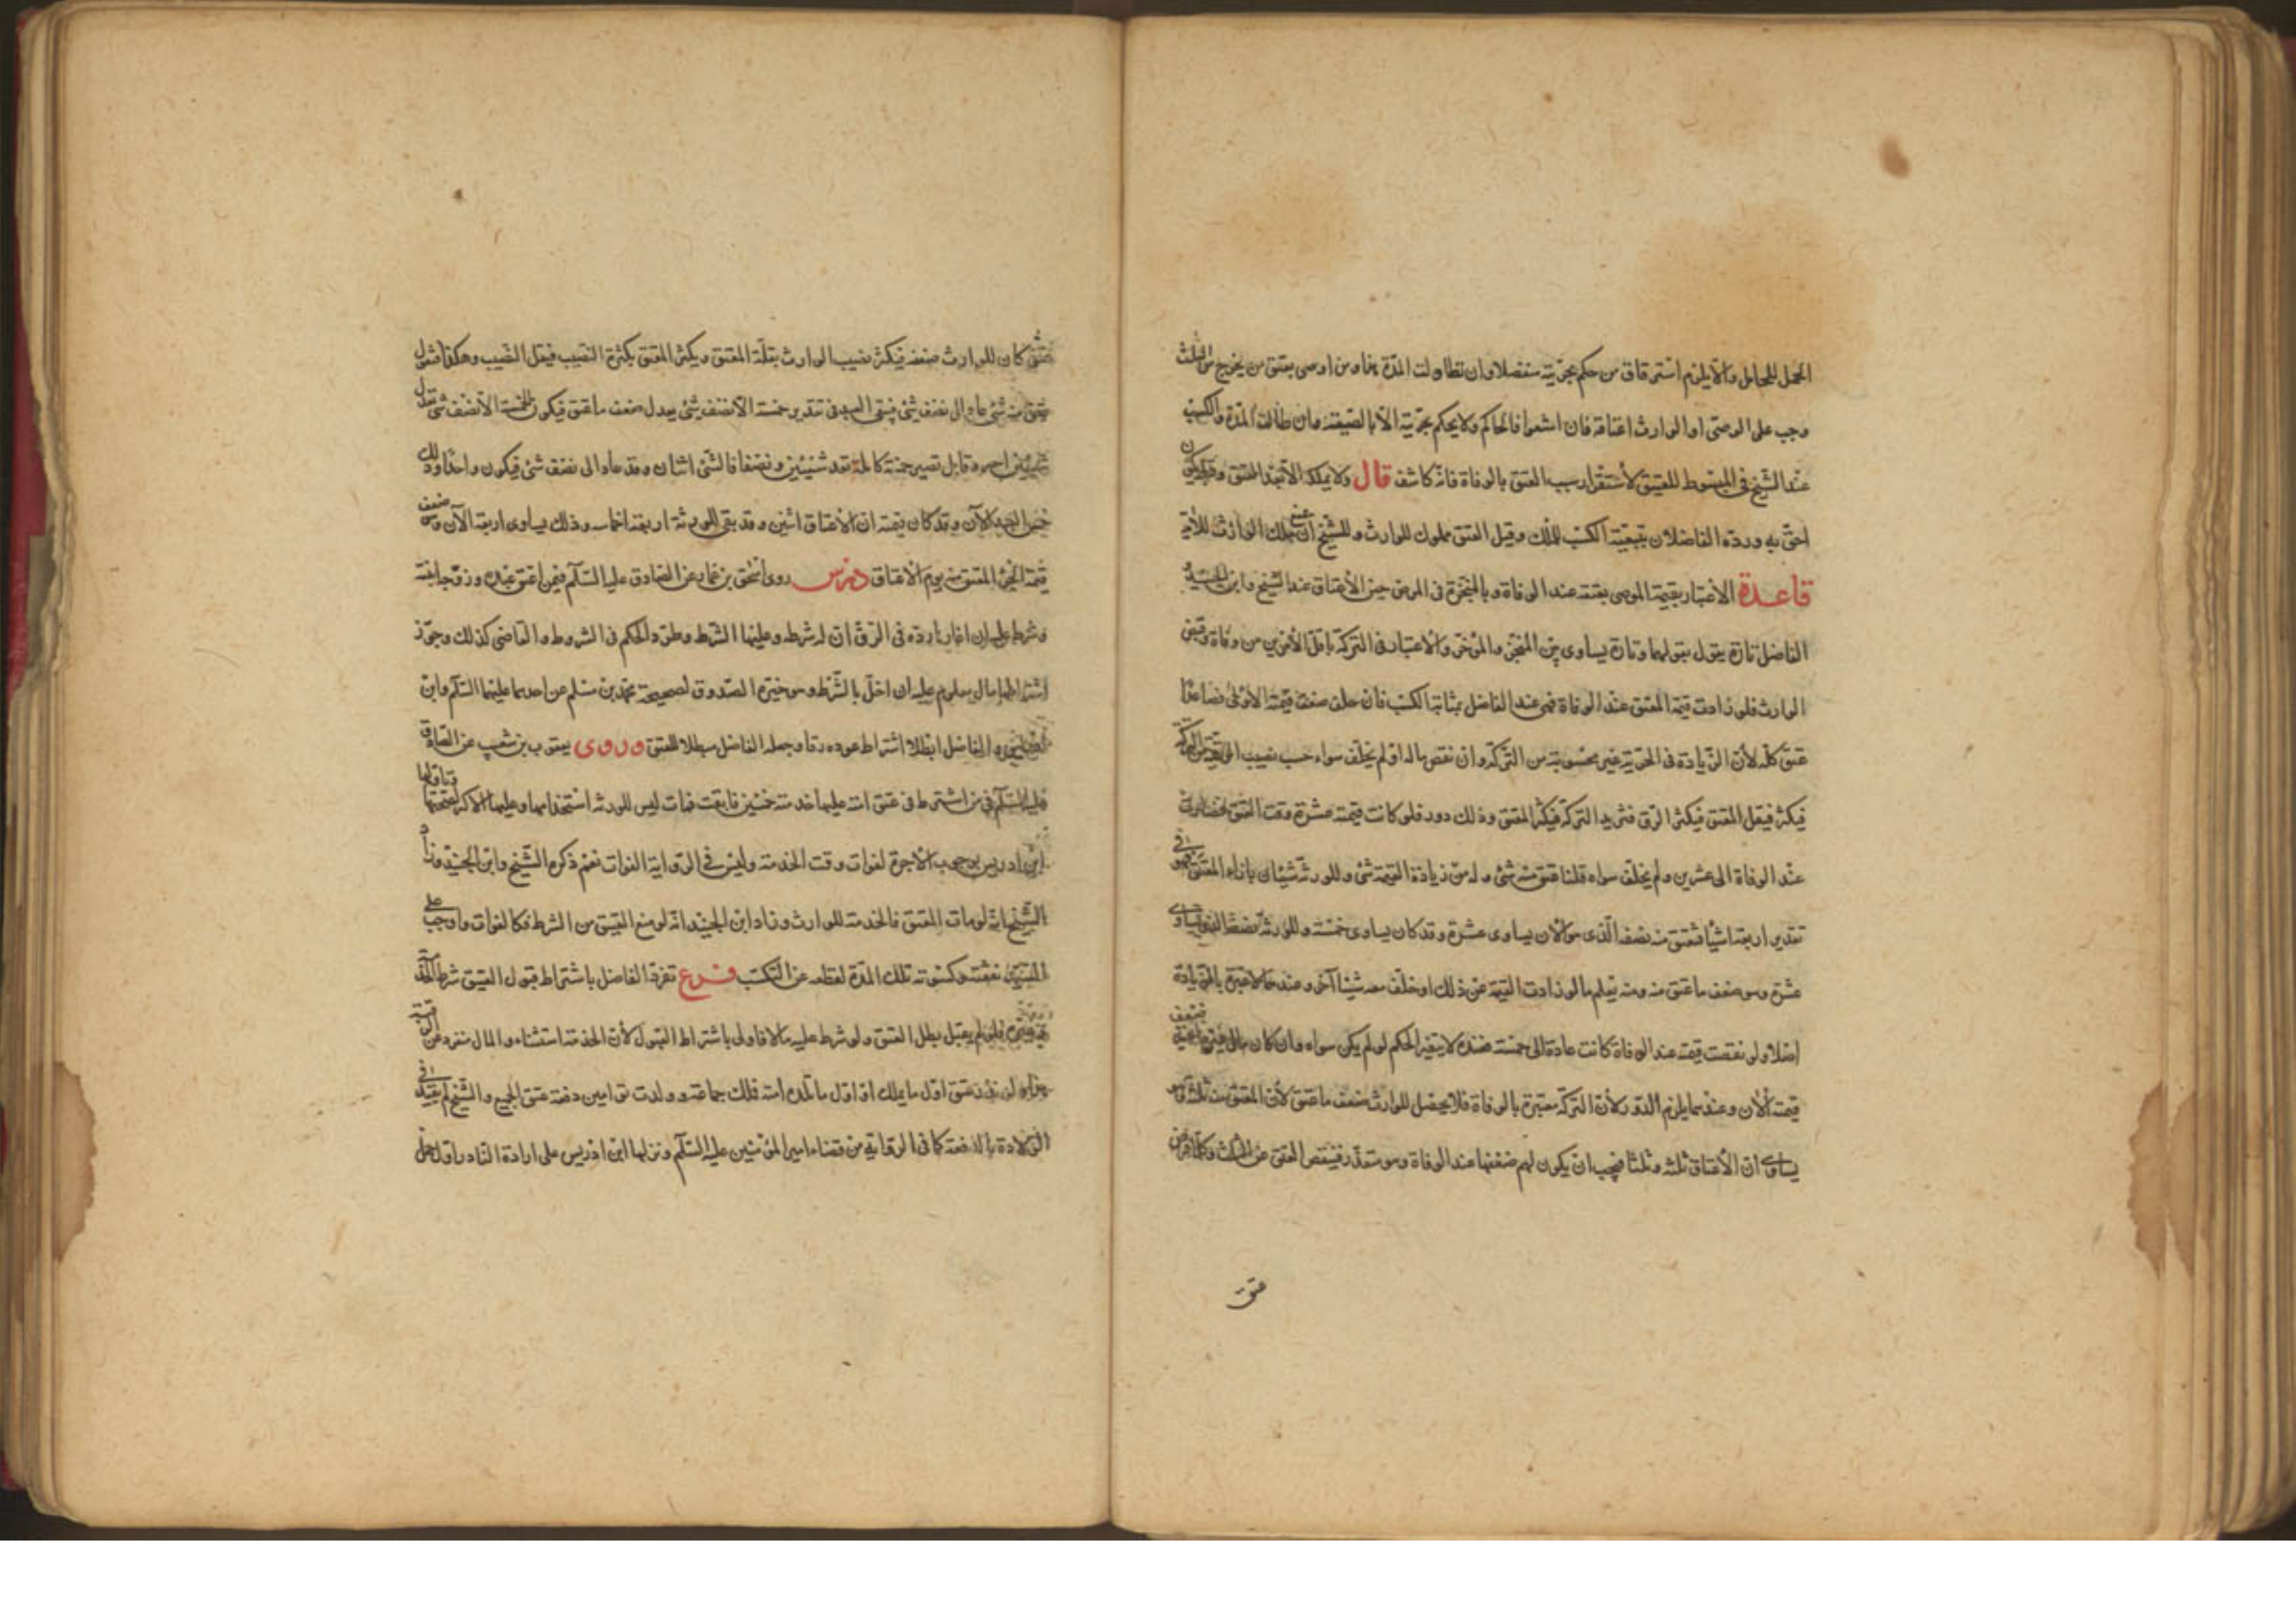 الحمل للحامل والا يلزم استرقاق من حكم بحريته منفصلا وان تطاولت المدة بها ومن اوصى بعتق من يخرج من الثلث
وجب على الوصى او الوارث اعتاقه فان امتنعوا فالحاكم ولا يحكم بحريته الا بالصيغة وان طالت المدة والكسب
عند الشيخ فى المبسوط للعتيق لاستقرار سبب العتق بالوفاة فانه كاشف قال ولا يملك الا بعد العتق وهو ليكون
احق به ورده الفاضلان بتبعية الكسب للملك وقيل العتق مملوك للوارث وللشيخ ان يمنع ملك الوارث للآية
قاعدة الاعتبار بقيمة الموصى بعتقه عند الوفاة وبالمنجزة فى المرض حين الاعتاق عند الشيخ وابن الجنيد و
الفاضل تارة يقول بقولهما وتارة يساوى بين المنجز والمؤخر والاعتبار فى التركة باقل الامرين من وفاة وقبض
الوارث فلو زادت قيمة المعتق عند الوفاة فهى عند الفاضل بمثابة الكسب فان خلف ضعف قيمته الاولى فصاعدا
عتق كله لان الزيادة فى الحرية غير محسوبة من التركة وان نقص ماله او لم يخلف سواه حسب نصيب الرقية من التركة
فيكثر فيقل المعتق فيكثر الرق فتزيد التركة فيكثر المعتق وذلك دور فلو كانت قيمته عشرة وقت العتق فصارت
عند الوفاة الى عشرين ولم يخلف سواه قلنا عتق منه شئ وله من زيادة القيمة شئ وللورثة شيئان بازاء المعتق فهو فى
تقدير اربعة اشياء فعتق منه نصفه الذى هو الآن يساوى عشرة وقد كان يساوى خمسة وللورثة نصفه الذى يساوى
عشرة وهو ضعف ما عتق منه ومنه يعلم ما لو زادت القيمة عن ذلك او خلف معه شيئا آخر وعندهما لا عبرة بالزيادة
اصلا ولو نقصت قيمته عند الوفاة كانت عادة الى خمسة فعنده لا يتغير الحكم لو لم يكن سواه وان كان مال فيعتبر ضعف
قيمته الآن وعندهما يلزم الدور لان التركة معتبرة بالوفاة فلا يحصل للوارث ضعف ما عتق لان المعتق منه ثلثه وهو
يساوى ان الاعتاق ثلثه وثلثا فيجب ان يكون لهم ضعفها عند الوفاة وهو متعذر فينقص العتق عن الثلث وكلما فرض
عتق
عتق كان للوارث ضعفه فيكثر نصيب الوارث بقلة المعتق ويكثر المعتق بكثرة النصيب فيقل النصيب وهكذا فنقول
عتق منه شئ عاد الى نصف شئ فيبقى العبد فى تقدير خمسة الا نصف شئ يعدل ضعف ما عتق فيكون الخمسة الا نصف شئ تعدل
شيئين اجبر وقابل تصير خمسة كاملة تعدل شيئين ونصفا فالشئ اثنان وقد عاد الى نصف شئ فيكون واحدا وذلك
خمس العبد الآن وقد كان قيمته ان الاعتاق اثنين وقد بقى للورثة اربعة اخماسه وذلك يساوى اربعة الآن وهى ضعف
قيمة الجزء المعتق منه يوم الاعتاق درس روى اسحق بن عمار عن الصادق عليه السلم فيمن اعتق عبده وزوجه ابنته
وشرط عليه ان اغارها رده فى الرق ان له شرطه وعليها الشرط وطرد الحكم فى الشروط والقاضى كذلك وجوز
اشتراطها مال معلوم عليه ان اخل بالشرط وهو خيرة الصدوق لصحيحة محمد بن مسلم عن احدهما عليهما السلم وابن
ادريس والفاضل ابطلا اشتراط عوده رقا وجعله الفاضل مبطلا للعتق وروى يعقوب بن شعيب عن الصادق
عليه السلم فى من اشترط فى عتق امته عليها خدمته خمسين فابقت فمات ليس للورثة استخدامها وعليها الاكثر لصحتها وتاولها
ابن ادريس بوجوب الاجرة لفوات وقت الخدمة وليس فى الرواية الفوات نعم ذكره الشيخ وابن الجنيد وزاد
الشيخ انه لو مات المعتق فالخدمة للوارث وزاد ابن الجنيد انه لو منع العتيق من الشرط فكا لفوات واوجب على
المعتق نفقته وكسوته تلك المدة لقطعه عن التكسب فرع تفرد الفاضل باشتراط قبول العتيق شرط الخدمة
فلو لم يقبل بطل العتق ولو شرط عليه مالا فاولى باشتراط القبول لان الخدمة استثناء والمال منفرد عن
ولو نذر عتق اول ما يملك او اول ما تلده امته فملك جماعة او ولدت توامين دفعة عتق الجميع والشيخ لم يقيد فى
الولادة بالدفعة كما فى الرواية من قضاء امير المؤمنين عليه السلم ونزلها ابن ادريس على ارادة الناذر اول حمل